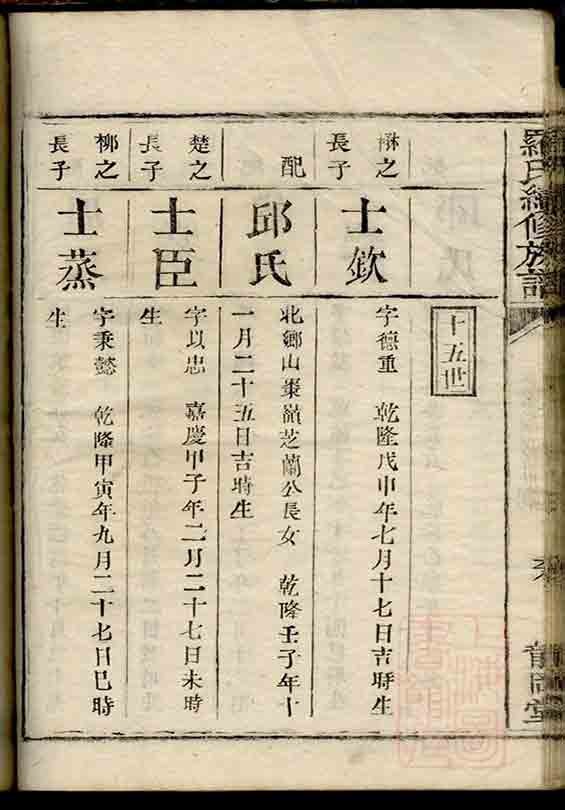 羅氏續修族譜
十五世
楙之
長子
士欽
字德重 乾隆戊申年七月十七日吉時生
配
邱氏
北鄉山棗嶺芝蘭公長女 乾隆壬子年十
一月二十五日吉時生
楚之
長子
士臣
字以忠 嘉慶甲子年二月二十七日未時
生
柳之
長子
士蒸
字秉懿 乾隆甲寅年九月二十七日巳時
生